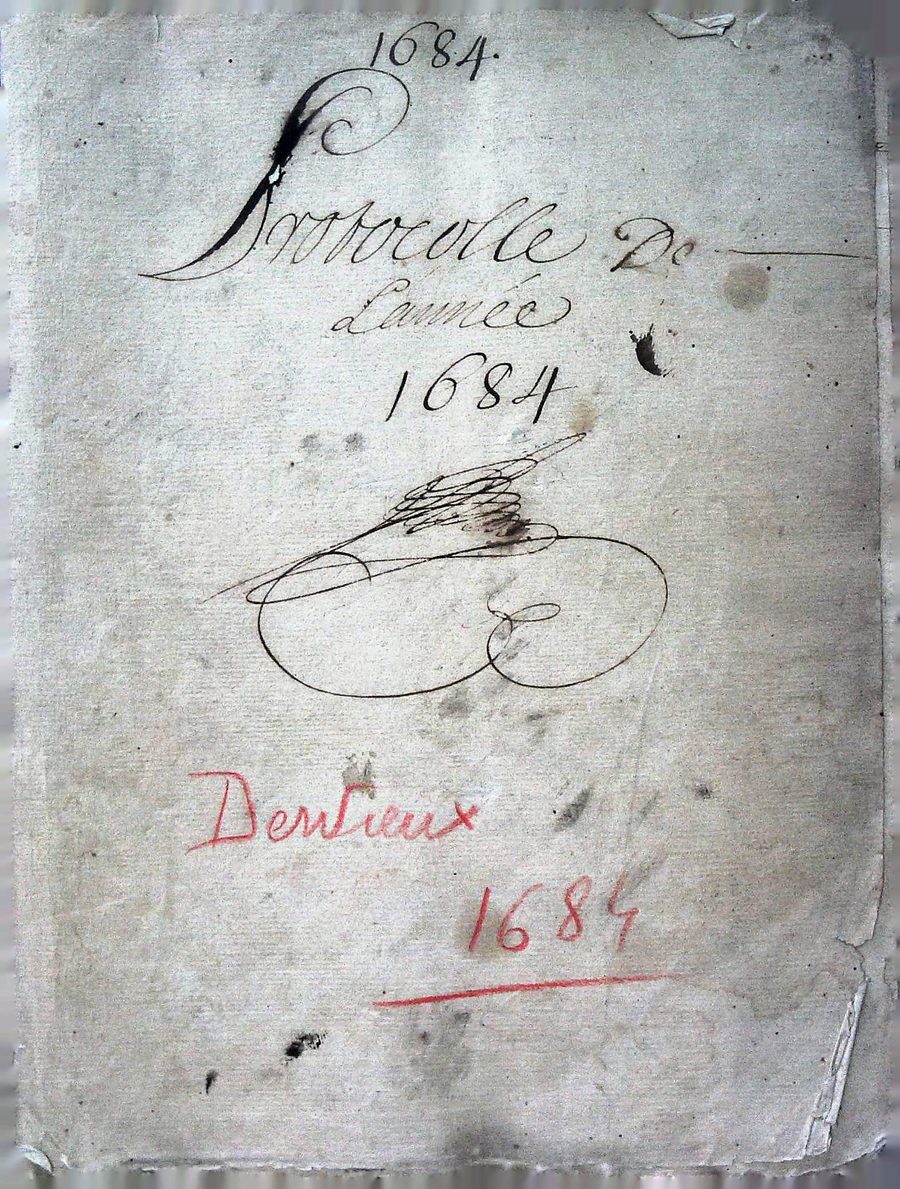 1684.
Protocolle De
Lannée
1684
Dervieux
1684